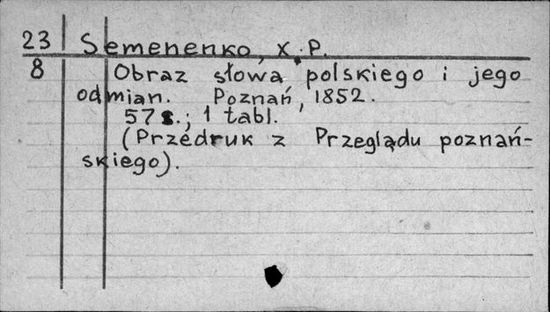 23 Semenenko, X. P.
8 Obraz słowa polskiego i jego
odmian. Poznań, 1852.
57 s.; 1 tabl.
(Przedruk z Przeglądu poznań-
skiego).